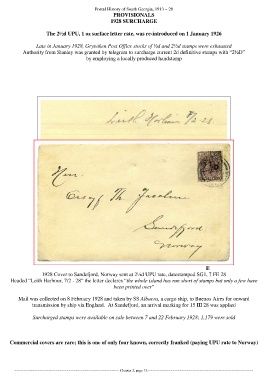 Postal History of South Georgia, 1911 – 28
PROVISIONALS
1928 SURCHARGE
The 2½d UPU, 1 oz surface letter rate, was re-introduced on 1 January 1926
Late in January 1928, Grytviken Post Office stocks of ½d and 2½d stamps were exhausted
Authority from Stanley was granted by telegram to surcharge current 2d definitive stamps with "2½D"
by employing a locally produced handstamp
Leith Harbour 7/2 - 28.
Herr.
Th.
Sandefjord.
Norway
1928 Cover to Sandefjord, Norway sent at 2½d UPU rate, datestamped SG3, 7 FE 28
Headed "Leith Harbour, 7/2 - 28" the letter declares "the whole island has run short of stamps but only a few have
been printed over"
Mail was collected on 8 February 1928 and taken by SS Albuera, a cargo ship, to Buenos Aires for onward
transmission by ship via England. At Sandefjord, an arrival marking for 15 III 28 was applied
Surcharged stamps were available on sale between 7 and 22 February 1928; 1,179 were sold
Commercial covers are rare; this is one of only four known, correctly franked (paying UPU rate to Norway)